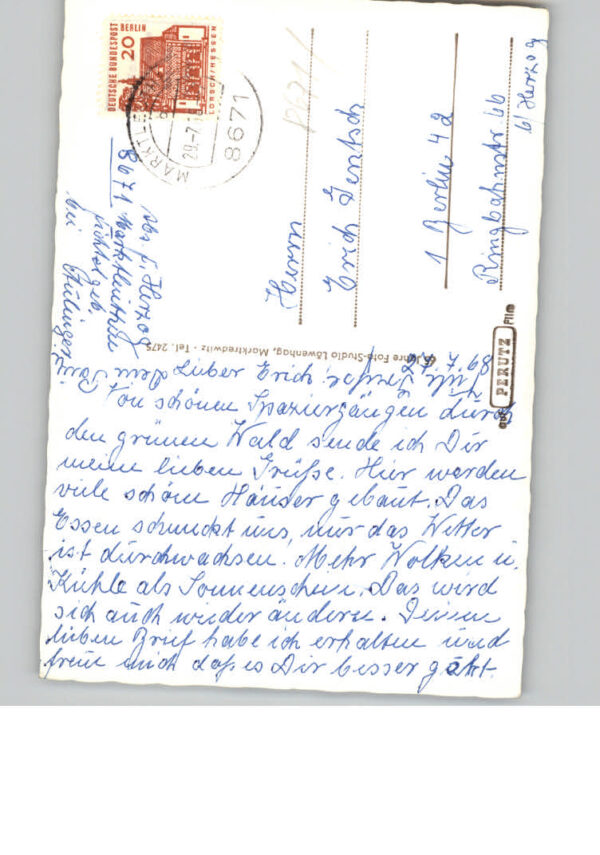 DEUTSCHE BUNDESPOST
BERLIN
20
LORSCH/HESSEN
MARKTLEUTHEN
29.-7.68
8671
Abs. F. Herzog
8671 Marktleuthen
Fichtelgeb.
bei
Herrn
Erich Jentsch
1 Berlin 42
Ringbahnstr. 66
b/ Herzog
Foto-Studio Löwenhag, Marktredwitz · Tel. 2475
PERUTZ
Film
27.7.68
Lieber Erich!
Von schönen Spaziergängen durch
den grünen Wald sende ich Dir
meine lieben Grüße. Hier werden
viele schöne Häuser gebaut. Das
Essen schmeckt uns, nur das Wetter
ist durchwachsen. Mehr Wolken u.
Kühle als Sonnenschein. Das wird
sich auch wieder ändern. Deinen
lieben Brief habe ich erhalten und
freue mich daß es Dir besser geht.